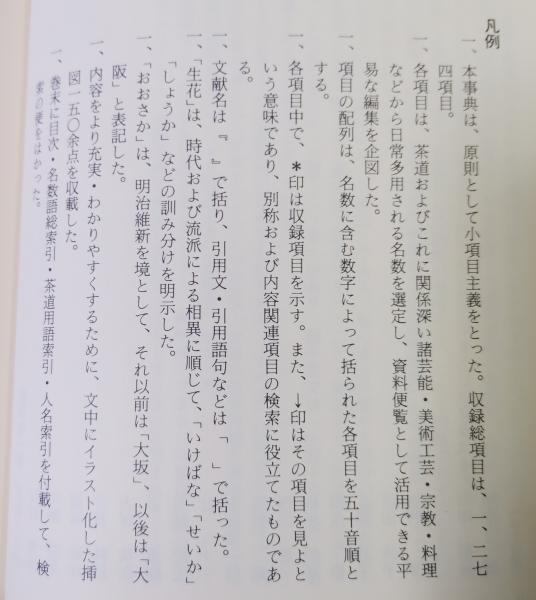 凡例
一、本事典は、原則として小項目主義をとった。収録総項目は、一、二七
四項目。
一、各項目は、茶道およびこれに関係深い諸芸能・美術工芸・宗教・料理
などから日常多用される名数を選定し、資料便覧として活用できる平
易な編集を企図した。
一、項目の配列は、名数に含む数字によって括られた各項目を五十音順と
する。
一、各項目中で、＊印は収録項目を示す。また、→印はその項目を見よと
いう意味であり、別称および内容関連項目の検索に役立てたものであ
る。
一、文献名は『　』で括り、引用文・引用語句などは「　」で括った。
一、「生花」は、時代および流派による相異に順じて、「いけばな」「せいか」
「しょうか」などの訓み分けを明示した。
一、「おおさか」は、明治維新を境として、それ以前は「大坂」、以後は「大
阪」と表記した。
一、内容をより充実・わかりやすくするために、文中にイラスト化した挿
図一五〇余点を収載した。
一、巻末に目次・名数語総索引・茶道用語索引・人名索引を付載して、検
索の便をはかった。